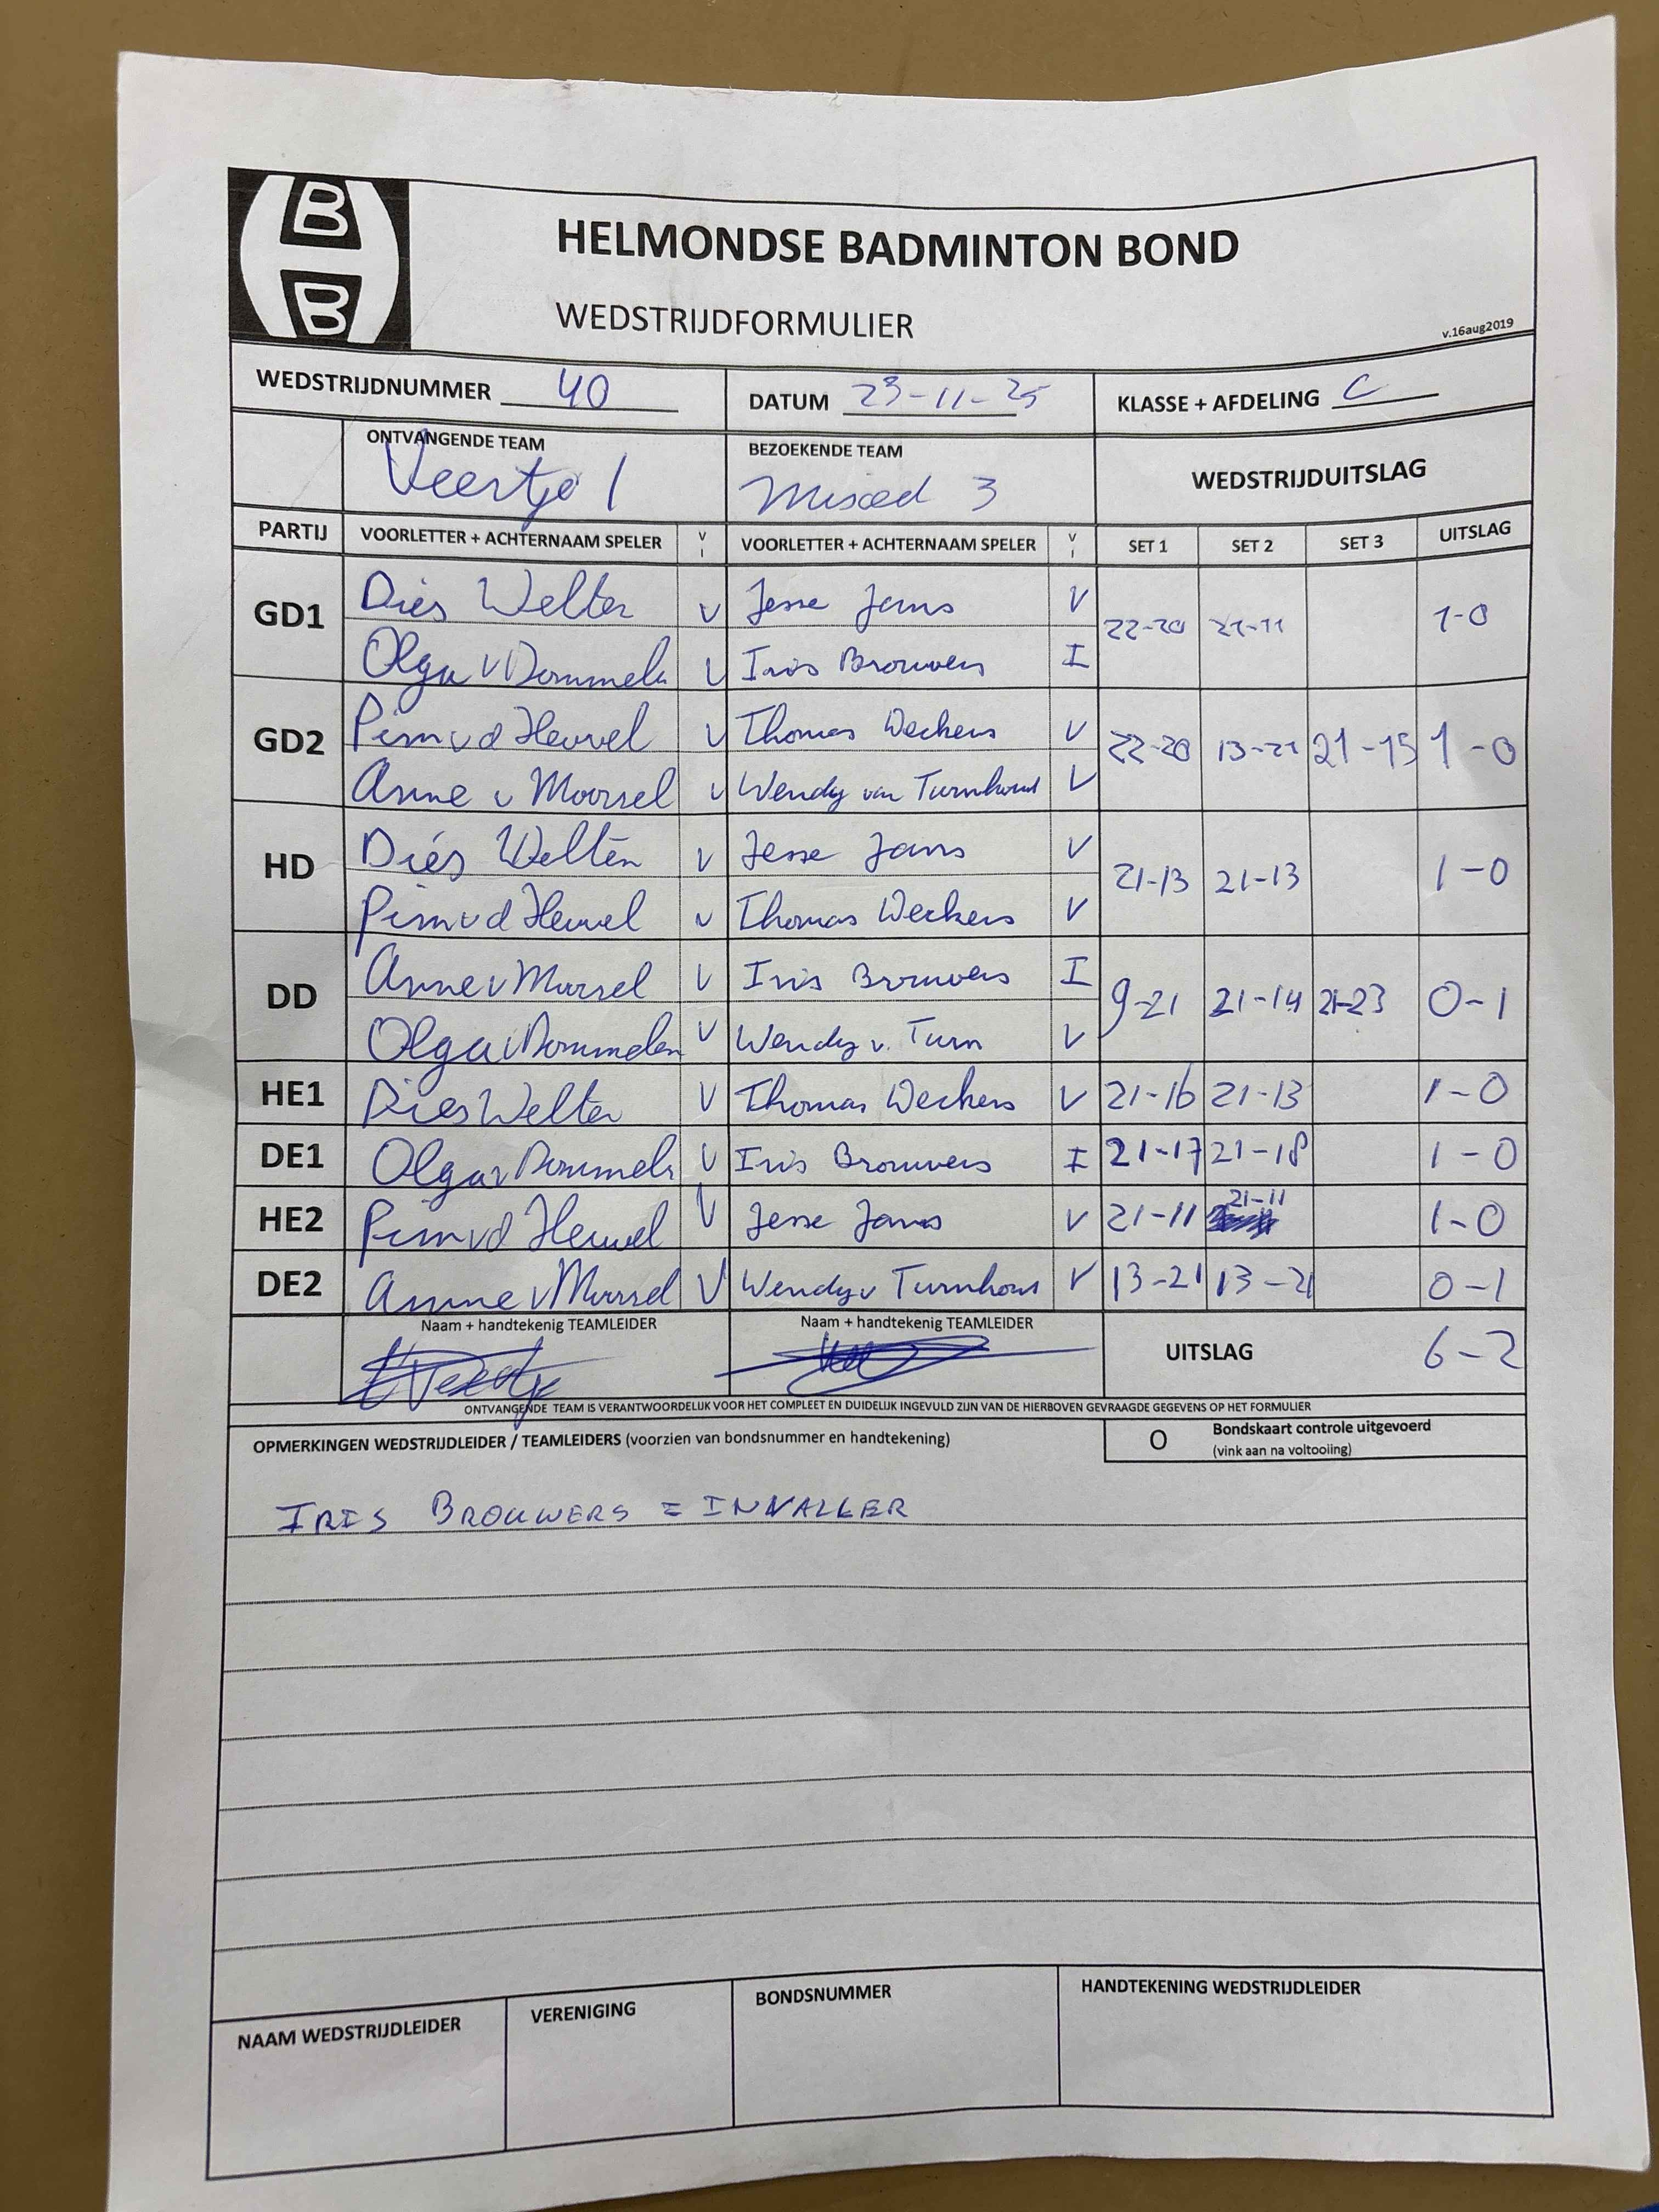 B
B
HELMONDSE BADMINTON BOND
WEDSTRIJDFORMULIER
v.16aug2019
WEDSTRIJDNUMMER 40 DATUM 23-11-25 KLASSE + AFDELING C
ONTVANGENDE TEAM BEZOEKENDE TEAM WEDSTRIJDUITSLAG
Veertje 1 Mixed 3
PARTIJ VOORLETTER + ACHTERNAAM SPELER V I VOORLETTER + ACHTERNAAM SPELER V I SET 1 SET 2 SET 3 UITSLAG
GD1 Dies Welten V Jesse Jans V 22-20 21-11 1-0
Olga v Dommelen V Iris Brouwers I
GD2 Pim v d Heuvel V Thomas Weckers V 22-20 13-21 21-15 1-0
Anne v Moorsel V Wendy van Turnhout V
HD Diés Welten V Jesse Jans V 21-13 21-13 1-0
Pim v d Heuvel V Thomas Weckers V
DD Anne v Moorsel V Iris Brouwers I 9-21 21-14 21-23 0-1
Olga v Dommelen V Wendy v. Turn V
HE1 Dies Welten V Thomas Weckers V 21-16 21-13 1-0
DE1 Olga v Dommelen V Iris Brouwers I 21-17 21-18 1-0
HE2 Pim vd Heuvel V Jesse Jans V 21-11 21-11 1-0
DE2 Anne v Moorsel V Wendy v Turnhout V 13-21 13-21 0-1
Naam + handtekenig TEAMLEIDER Naam + handtekenig TEAMLEIDER UITSLAG 6-2
Veertje
ONTVANGENDE TEAM IS VERANTWOORDELIJK VOOR HET COMPLEET EN DUIDELIJK INGEVULD ZIJN VAN DE HIERBOVEN GEVRAAGDE GEGEVENS OP HET FORMULIER
OPMERKINGEN WEDSTRIJDLEIDER / TEAMLEIDERS (voorzien van bondsnummer en handtekening) O Bondskaart controle uitgevoerd
(vink aan na voltooiing)
IRIS BROUWERS = INVALLER
NAAM WEDSTRIJDLEIDER VERENIGING BONDSNUMMER HANDTEKENING WEDSTRIJDLEIDER